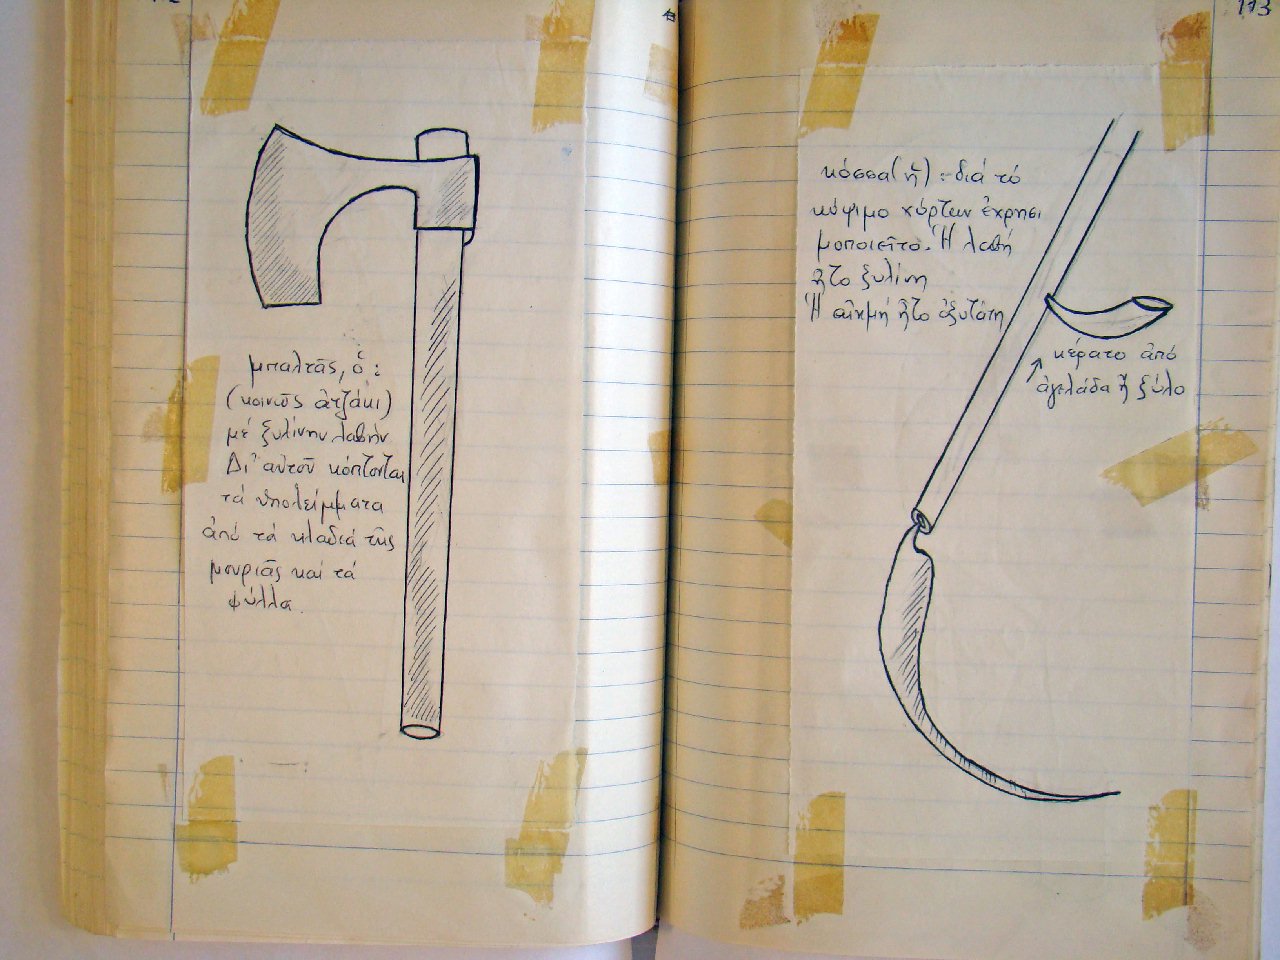 μπαλτᾶς, ὁ :
(κοινῶς ἀτζάκι)
μέ ξυλίνην λαβήν
Δι' αὐτοῦ κόπτονται
τά ὑπολείμματα
ἀπό τά κλαδιά τῆς
μουριᾶς καί τά
φύλλα.
113
κόσσα(ἡ) : διά τό
κόψιμο χόρτων ἐχρησι
μοποιεῖτο. Ἡ λαβή
ἦτο ξυλίνη
Ἡ αἰχμή ἦτο ὀξυτάτη
κέρατο ἀπό
ἀγελάδα ἤ ξύλο